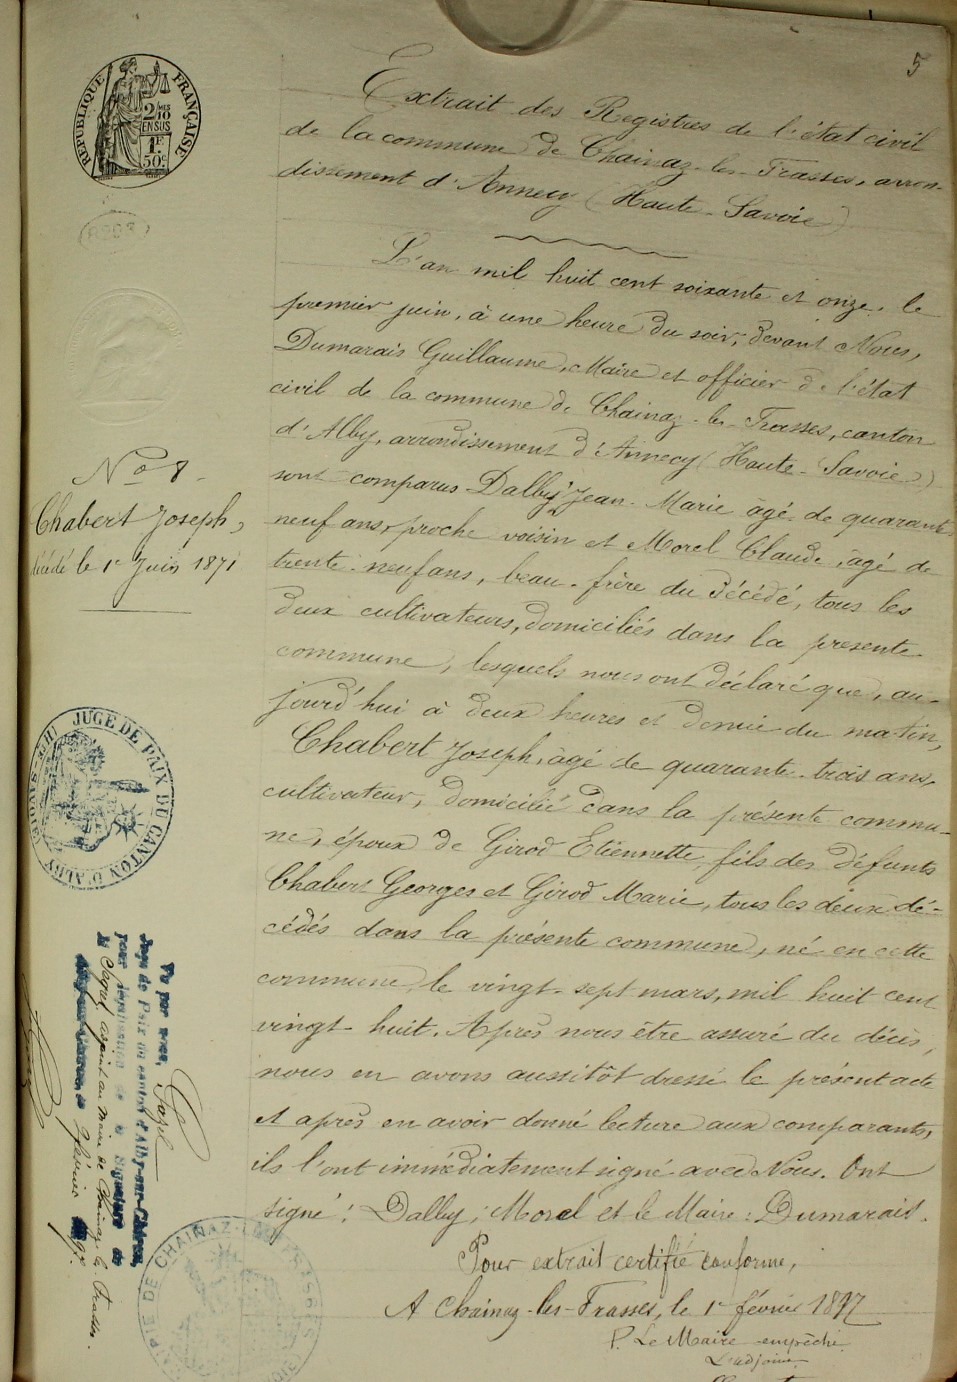 5
RÉPUBLIQUE FRANÇAISE
2/10MES
EN SUS
1F
50c
Extrait des Registres de l'état civil
de la commune de Chainaz-les-Frasses, arron-
dissement d'Annecy (Haute-Savoie)
L'an mil huit cent soixante et onze, le
premier juin, à une heure du soir, devant Nous,
Dumarais Guillaume, Maire et officier de l'état
civil de la commune de Chainaz-les-Frasses, canton
d'Alby, arrondissement d'Annecy (Haute-Savoie)
sont comparus Dalby Jean-Marie âgé de quarante-
neuf ans, proche voisin et Morel Claude, âgé de
trente-neuf ans, beau-frère du décédé, tous les
deux cultivateurs, domiciliés dans la présente
commune, lesquels nous ont déclaré que, au-
jourd'hui à deux heures et demie du matin,
Chabert Joseph, âgé de quarante-trois ans,
cultivateur, domicilié dans la présente commu-
ne, époux de Girod Etiennette, fils des défunts
Chabert Georges et Girod Marie, tous les deux dé-
cédés dans la présente commune, né en cette
commune, le vingt-sept mars, mil huit cent
vingt-huit. Après nous être assuré du décès,
nous en avons aussitôt dressé le présent acte
et après en avoir donné lecture aux comparants,
ils l'ont immédiatement signé avec Nous. Ont
signé: Dalby; Morel et le Maire: Dumarais.
Pour extrait certifié conforme,
A Chainaz-les-Frasses, le 1er février 1897
P. Le Maire empêché
L'adjoint
No 8
Chabert Joseph,
décédé le 1er Juin 1871
JUGE DE PAIX DU CANTON D'ALBY (HTE-SAVOIE)
Vu par nous,
Juge de Paix du canton d'Alby-sur-Chéran,
pour légalisation de la Signature de
adjoint au Maire de Chainaz les Frasses.
Alby-sur-Chéran, le février
MAIRIE DE CHAINAZ-LES-FRASSES